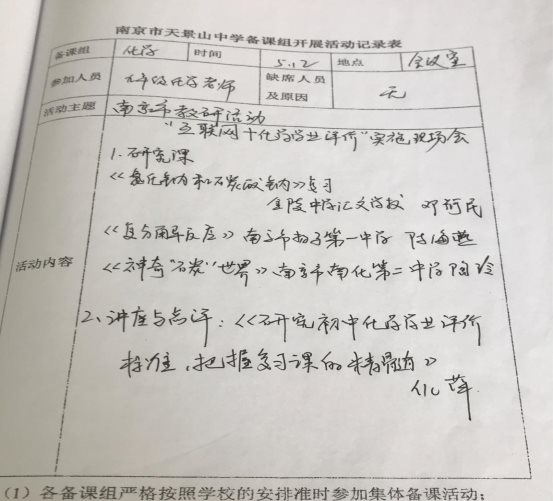 南京市天景山中学备课组开展活动记录表
备课组 化学 时间 5.12 地点 会议室
参加人员 九年级化学老师 缺席人员及原因 无
活动主题 南京市教研活动
"互联网+化学学业评价"实施现场会
活动内容
1. 研究课
《氢氧化钠和石炭酸钠》复习
金陵中学汇文学校 邓
《复分解反应》南京市扬子第一中学 陈
《神奇"石炭"世界》南京市南化第二中学 陶玲
2、讲座与点评:《研究初中化学学业评价
标准,把握复习课的精髓》
萍
(1)各备课组严格按照学校的安排准时参加集体备课活动;